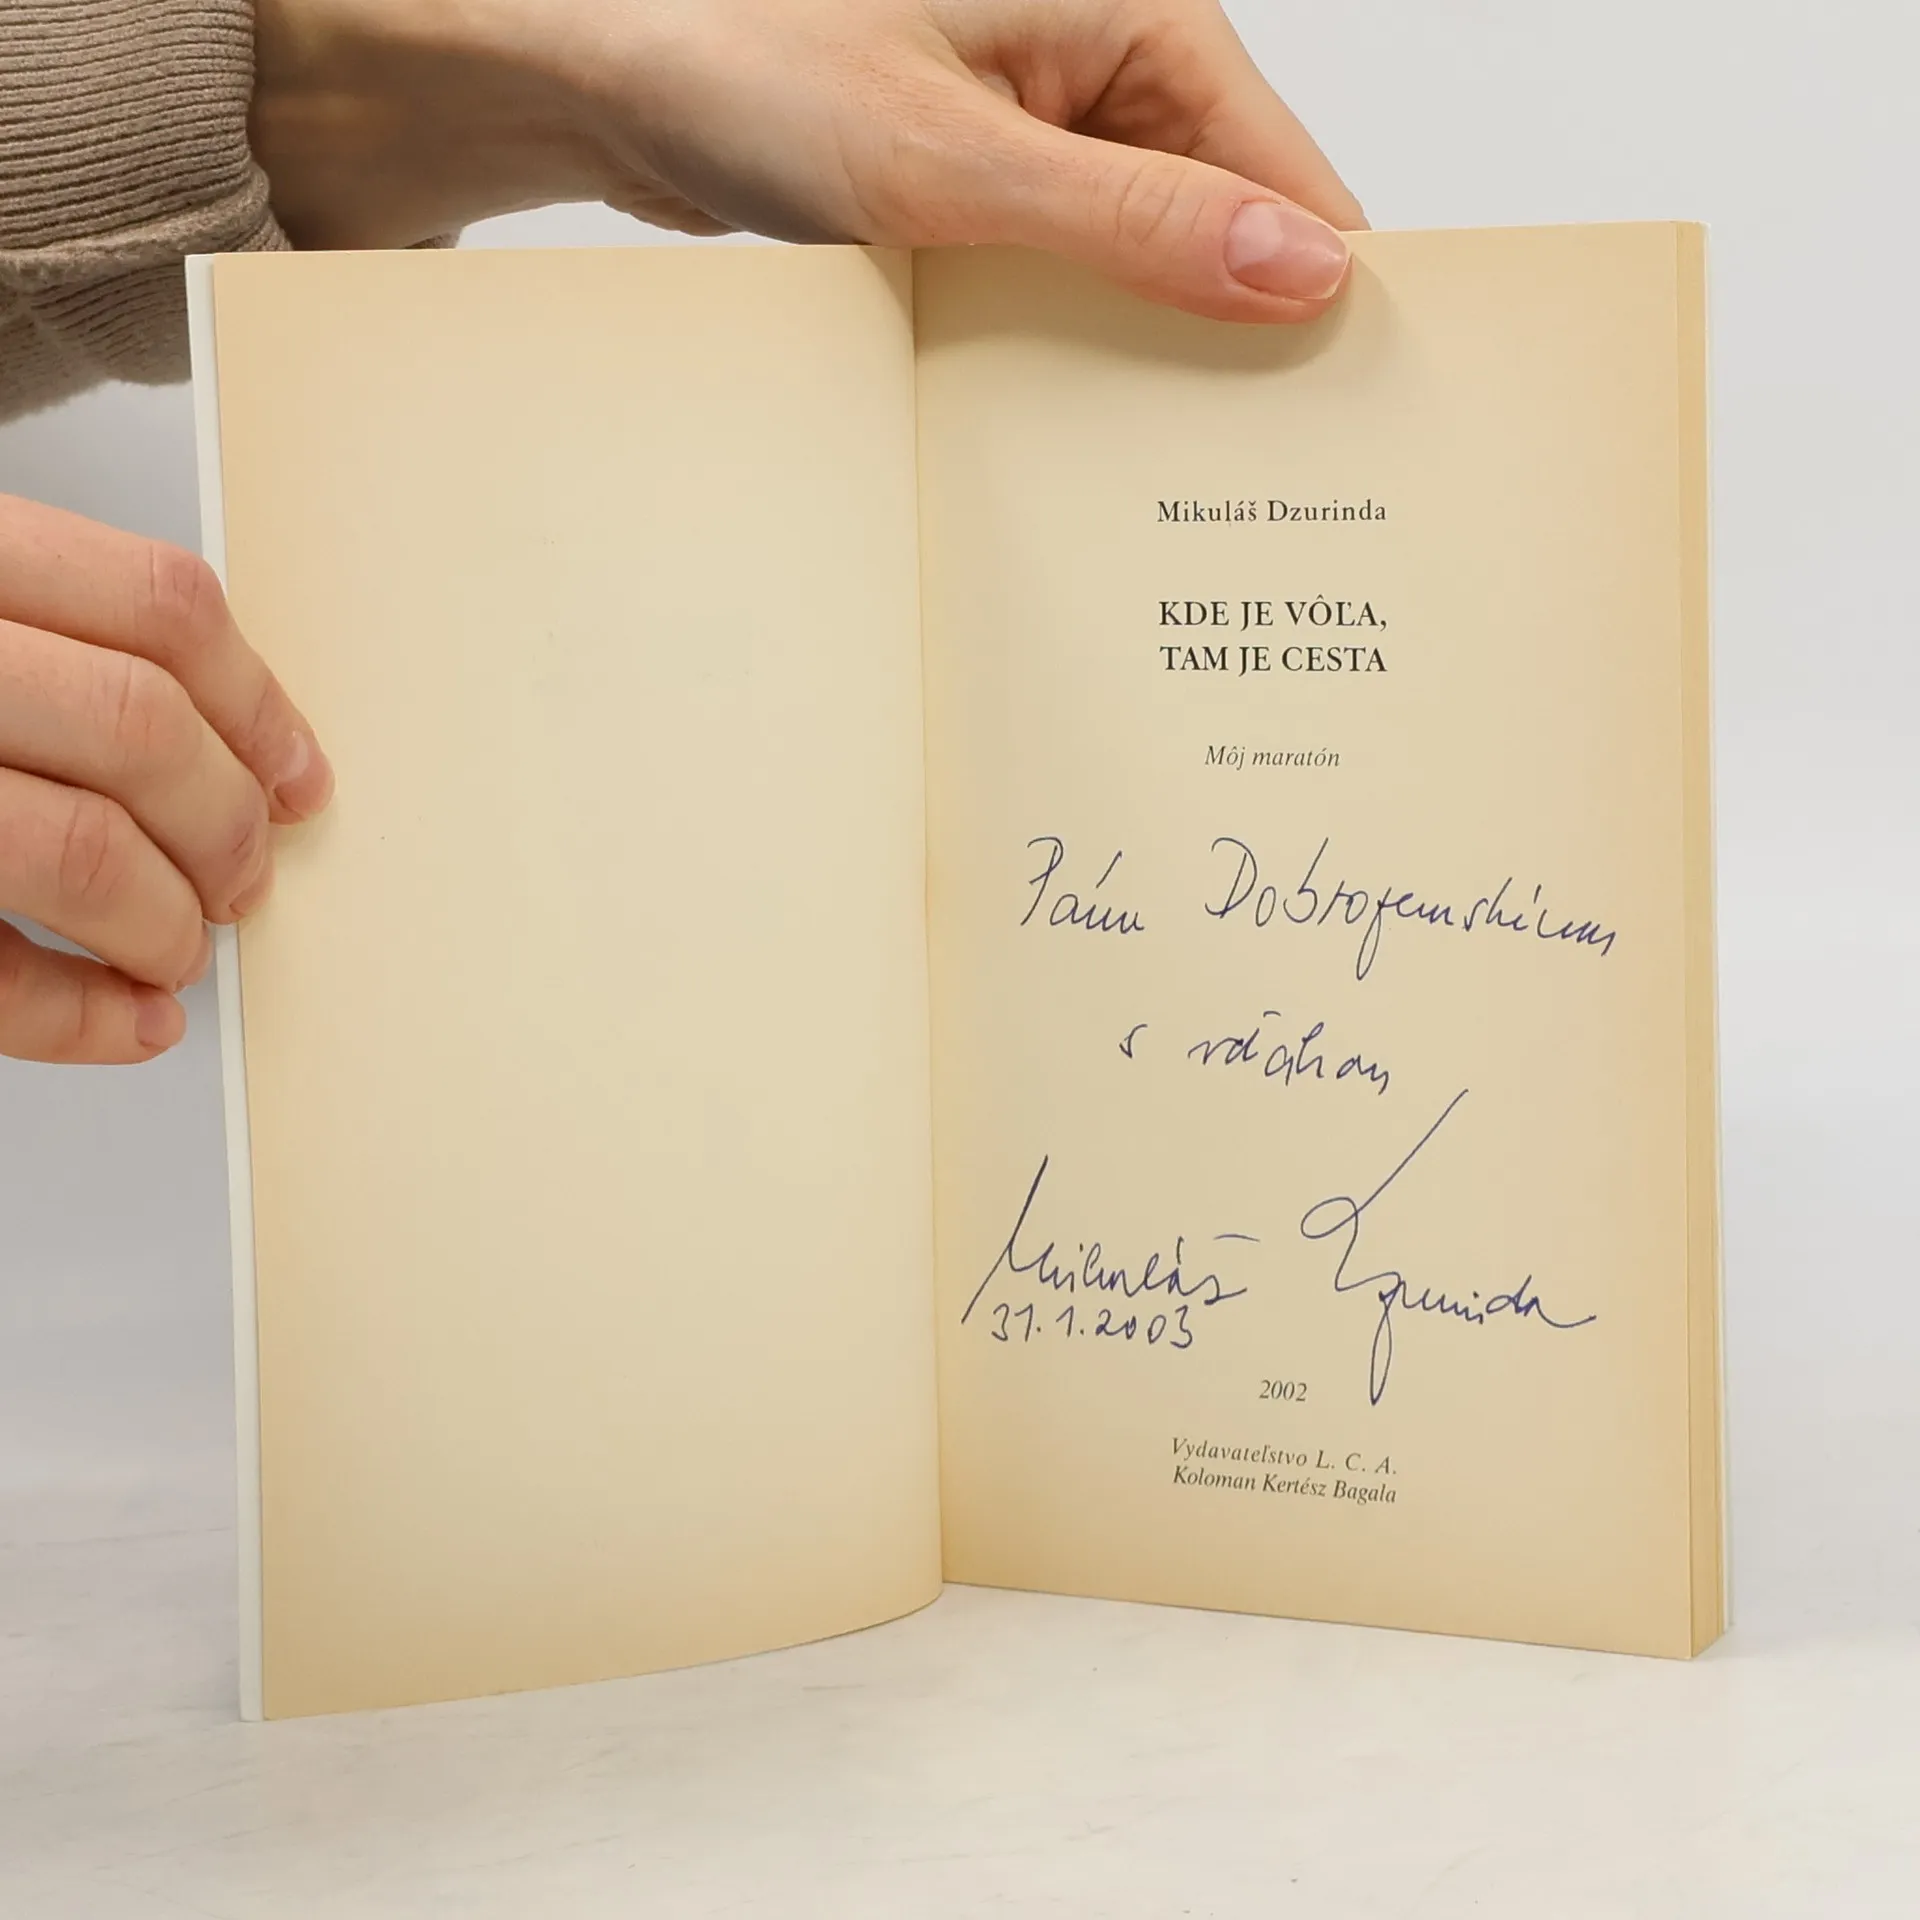 Mikuláš Dzurinda
KDE JE VÔĽA,
TAM JE CESTA
Môj maratón
Pánu Dobrozemskému
s vďakou
Mikuláš Dzurinda
31.1.2003
2002
Vydavateľstvo L. C. A.
Koloman Kertész Bagala